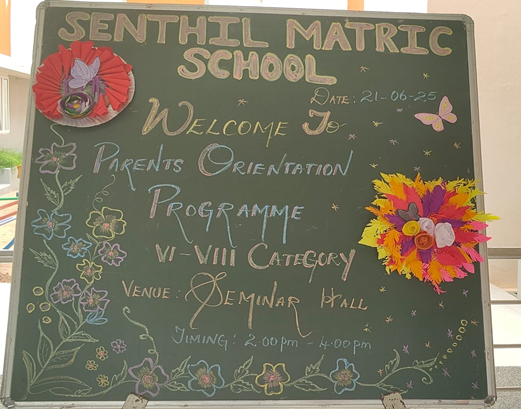 SENTHIL MATRIC
SCHOOL
DATE: 21-06-25
WELCOME To
PARENTS ORIENTATION
PROGRAMME
VI-VIII CATEGORY
VENUE: SEMINAR HALL
TIMING: 2.00pm - 4.00pm